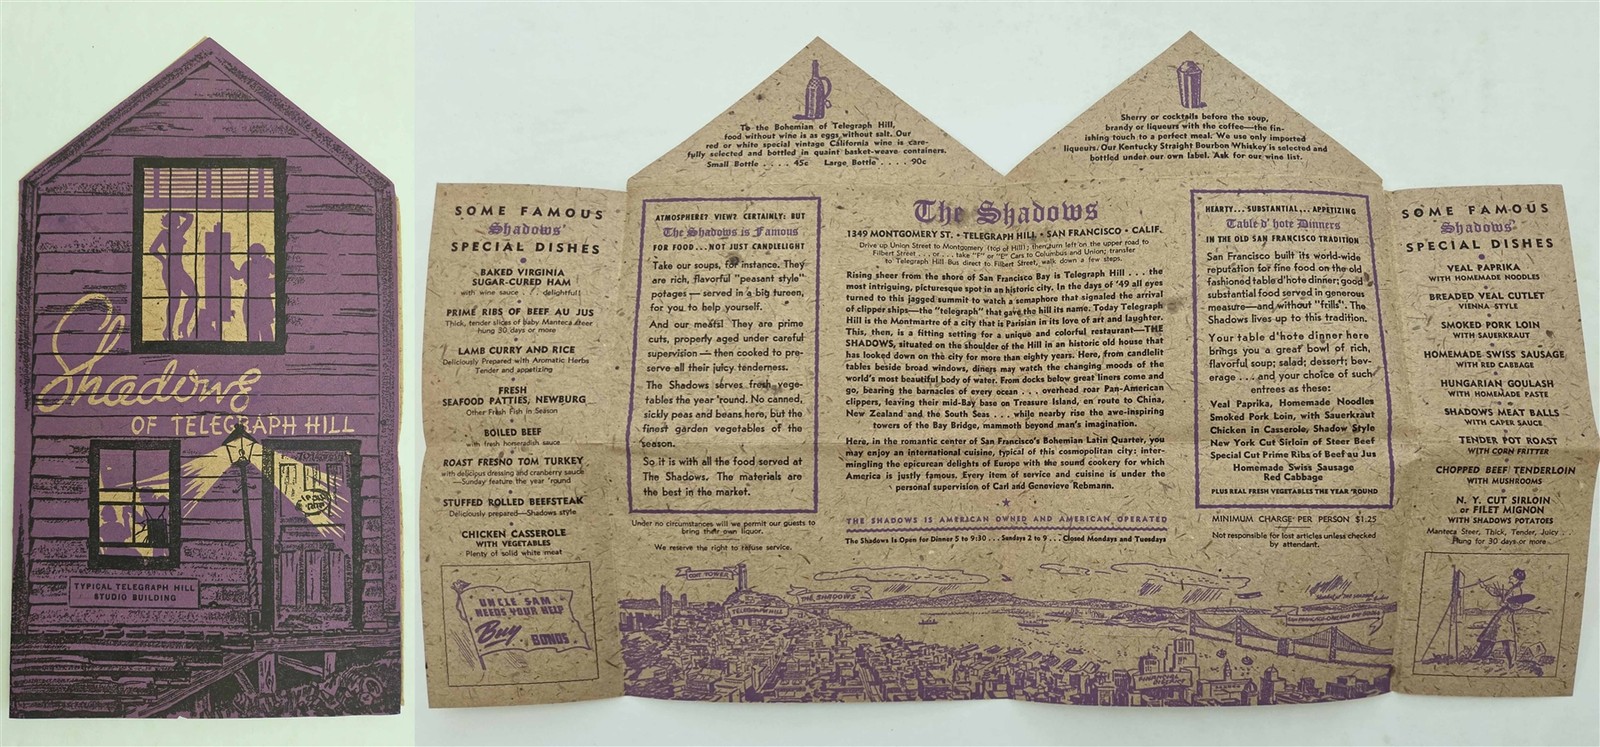 Shadows
OF TELEGRAPH HILL
TYPICAL TELEGRAPH HILL
STUDIO BUILDING
To the Bohemian of Telegraph Hill,
food without wine is as eggs without salt. Our
red or white special vintage California wine is care-
fully selected and bottled in quaint basket-weave containers.
Small Bottle . . . . 45c Large Bottle . . . . 90c
Sherry or cocktails before the soup,
brandy or liqueurs with the coffee—the fin-
ishing touch to a perfect meal. We use only imported
liqueurs. Our Kentucky Straight Bourbon Whiskey is selected and
bottled under our own label. Ask for our wine list.
SOME FAMOUS
Shadows'
SPECIAL DISHES
BAKED VIRGINIA
SUGAR-CURED HAM
with wine sauce . . . delightful!
PRIME RIBS OF BEEF AU JUS
Thick, tender slices of baby Manteca steer
hung 30 days or more
LAMB CURRY AND RICE
Deliciously Prepared with Aromatic Herbs
Tender and appetizing
FRESH
SEAFOOD PATTIES, NEWBURG
Other Fresh Fish in Season
BOILED BEEF
with fresh horseradish sauce
ROAST FRESNO TOM TURKEY
with delicious dressing and cranberry sauce
—Sunday feature the year 'round
STUFFED ROLLED BEEFSTEAK
Deliciously prepared—Shadows style
CHICKEN CASSEROLE
WITH VEGETABLES
Plenty of solid white meat
UNCLE SAM
NEEDS YOUR HELP
Buy BONDS
ATMOSPHERE? VIEW? CERTAINLY: BUT
The Shadows is Famous
FOR FOOD...NOT JUST CANDLELIGHT
Take our soups, for instance. They
are rich, flavorful "peasant style"
potages — served in a big tureen,
for you to help yourself.
And our meats! They are prime
cuts, properly aged under careful
supervision — then cooked to pre-
serve all their juicy tenderness.
The Shadows serves fresh vege-
tables the year 'round. No canned,
sickly peas and beans here, but the
finest garden vegetables of the
season.
So it is with all the food served at
The Shadows. The materials are
the best in the market.
Under no circumstances will we permit our guests to
bring their own liquor.
We reserve the right to refuse service.
The Shadows
1349 MONTGOMERY ST. • TELEGRAPH HILL • SAN FRANCISCO • CALIF.
Drive up Union Street to Montgomery (top of Hill); then turn left on the upper road to
Filbert Street . . . or . . . take "F" or "E" Cars to Columbus and Union; transfer
to Telegraph Hill Bus direct to Filbert Street, walk down a few steps.
Rising sheer from the shore of San Francisco Bay is Telegraph Hill . . . the
most intriguing, picturesque spot in an historic city. In the days of '49 all eyes
turned to this jagged summit to watch a semaphore that signaled the arrival
of clipper ships—the "telegraph" that gave the hill its name. Today Telegraph
Hill is the Montmartre of a city that is Parisian in its love of art and laughter.
This, then, is a fitting setting for a unique and colorful restaurant—THE
SHADOWS, situated on the shoulder of the Hill in an historic old house that
has looked down on the city for more than eighty years. Here, from candlelit
tables beside broad windows, diners may watch the changing moods of the
world's most beautiful body of water. From docks below great liners come and
go, bearing the barnacles of every ocean . . . overhead roar Pan-American
clippers, leaving their mid-Bay base on Treasure Island, en route to China,
New Zealand and the South Seas . . . while nearby rise the awe-inspiring
towers of the Bay Bridge, mammoth beyond man's imagination.
Here, in the romantic center of San Francisco's Bohemian Latin Quarter, you
may enjoy an international cuisine, typical of this cosmopolitan city; inter-
mingling the epicurean delights of Europe with the sound cookery for which
America is justly famous. Every item of this cuisine is under the
personal supervision of Carl and Genevieve Rebmann.
THE SHADOWS IS AMERICAN OWNED AND AMERICAN OPERATED
The Shadows Is Open for Dinner 5 to 9:30 . . . Sundays 2 to 9 . . . Closed Mondays and Tuesdays
COIT TOWER
TELEGRAPH HILL
THE SHADOWS
HEARTY...SUBSTANTIAL...APPETIZING
Table d' hote Dinners
IN THE OLD SAN FRANCISCO TRADITION
San Francisco built its world-wide
reputation for fine food on the old
fashioned table d'hote dinner; good
substantial food served in generous
measure—and without "frills". The
Shadows lives up to this tradition.
Your table d'hote dinner here
brings you a great bowl of rich,
flavorful soup; salad; dessert; bev-
erage . . . and your choice of such
entrees as these:
Veal Paprika, Homemade Noodles
Smoked Pork Loin, with Sauerkraut
Chicken in Casserole, Shadow Style
New York Cut Sirloin of Steer Beef
Special Cut Prime Ribs of Beef au Jus
Homemade Swiss Sausage
Red Cabbage
PLUS REAL FRESH VEGETABLES THE YEAR 'ROUND
MINIMUM CHARGE PER PERSON $1.25
Not responsible for lost articles unless checked
by attendant.
SOME FAMOUS
Shadows'
SPECIAL DISHES
VEAL PAPRIKA
WITH HOMEMADE NOODLES
BREADED VEAL CUTLET
VIENNA STYLE
SMOKED PORK LOIN
WITH SAUERKRAUT
HOMEMADE SWISS SAUSAGE
WITH RED CABBAGE
HUNGARIAN GOULASH
WITH HOMEMADE PASTE
SHADOWS MEAT BALLS
WITH CAPER SAUCE
TENDER POT ROAST
WITH CORN FRITTER
CHOPPED BEEF TENDERLOIN
WITH MUSHROOMS
N. Y. CUT SIRLOIN
or FILET MIGNON
WITH SHADOWS POTATOES
Manteca Steer, Thick, Tender, Juicy . . .
Hung for 30 days or more